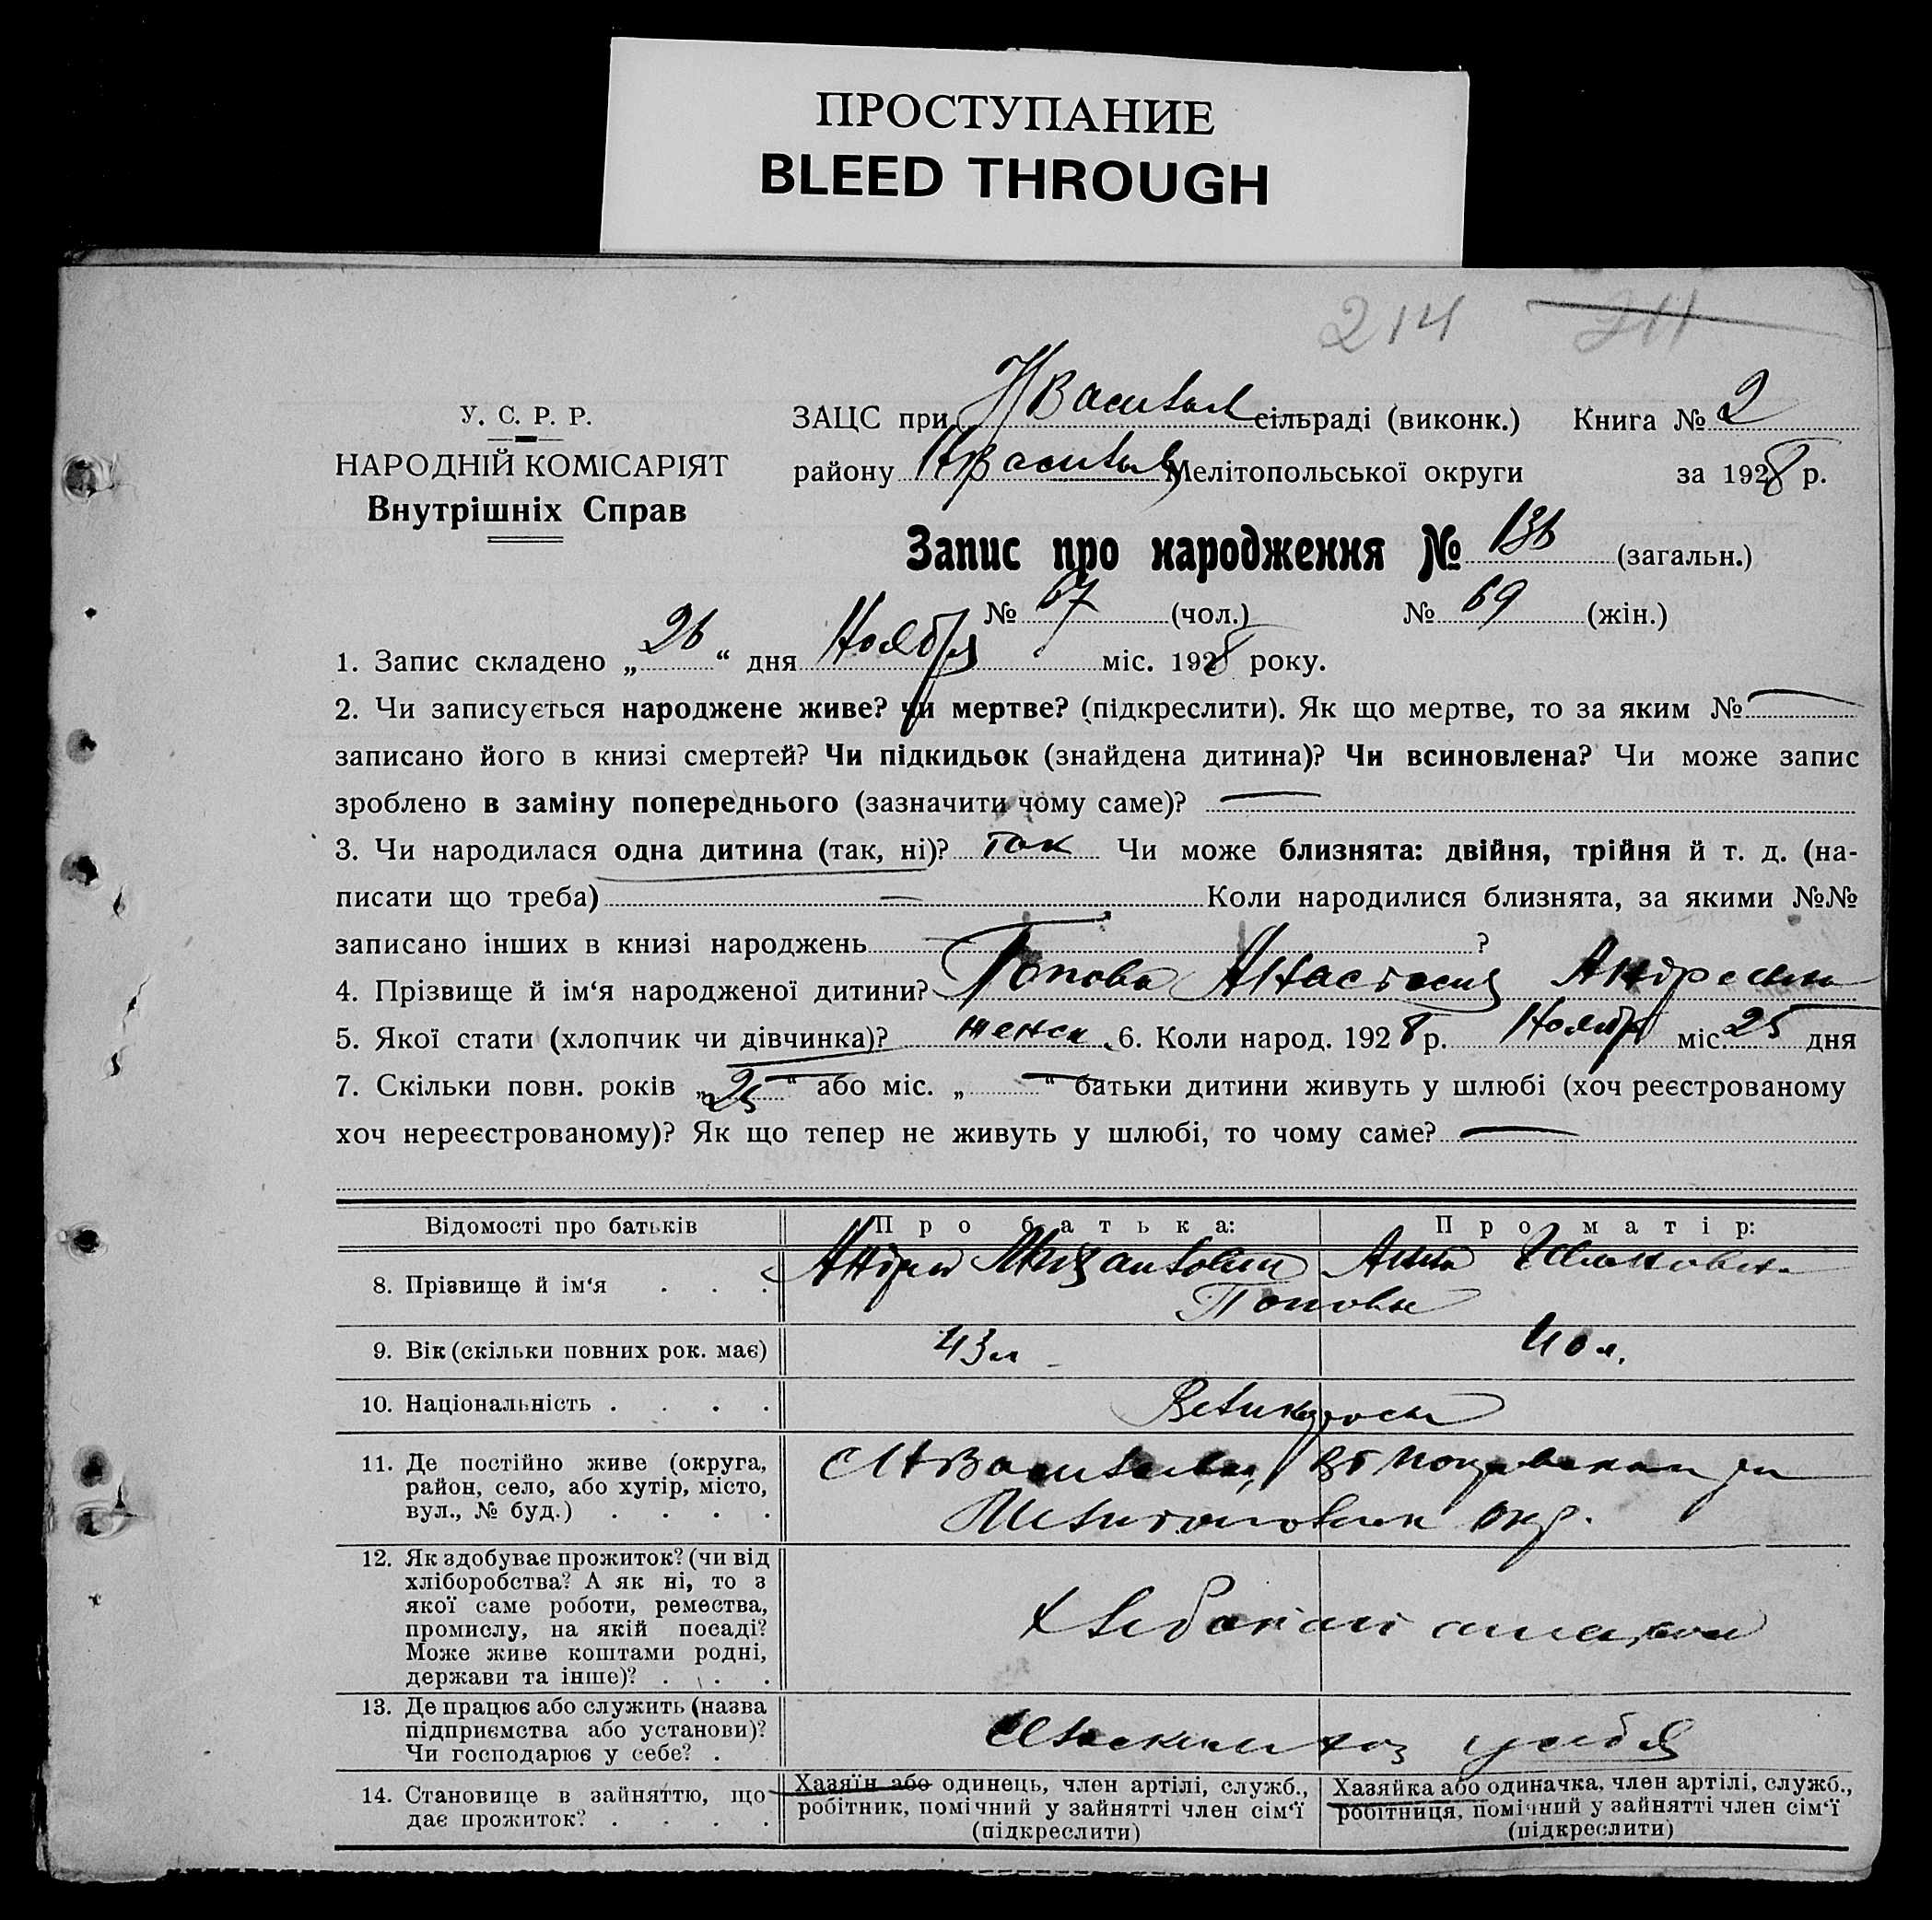 ПРОСТУПАНИЕ
BLEED THROUGH
214 211
У. С. Р. Р.
НАРОДНІЙ КОМІСАРІЯТ
Внутрішніх Справ
ЗАЦС при НВасильев сільраді (виконк.) Книга № 2
району НВасильев Мелітопольської округи за 1928 р.
Запис про народження № 136 (загальн.)
№ 67 (чол.) № 69 (жін.)
1. Запис складено „26“ дня Ноября міс. 1928 року.
2. Чи записується народжене живе? чи мертве? (підкреслити). Як що мертве, то за яким № —
записано його в книзі смертей? Чи підкидьок (знайдена дитина)? Чи всиновлена? Чи може запис
зроблено в заміну попереднього (зазначити чому саме)? —
3. Чи народилася одна дитина (так, ні)? так Чи може близнята: двійня, трійня й т. д. (на-
писати що треба) — Коли народилися близнята, за якими №№
записано інших в книзі народжень ?
4. Прізвище й ім‘я народженої дитини? Попова Анастасия Андреевна
5. Якої стати (хлопчик чи дівчинка)? женск. 6. Коли народ. 1928 р. Ноября міс. 25 дня
7. Скільки повн. років „25“ або міс. „—“ батьки дитини живуть у шлюбі (хоч реєстрованому
хоч нереєстрованому)? Як що тепер не живуть у шлюбі, то чому саме? —
Відомості про батьків Про батька: Про матір:
8. Прізвище й ім‘я . . . Андрей Анна
Поповы
9. Вік (скільки повних рок. має) 43 л 40 л.
10. Національність . . . . Великороссы
11. Де постійно живе (округа,
район, село, або хутір, місто,
вул., № буд.) . . . .
С НВасильевка,
Мелитопольск окр.
12. Як здобуває прожиток? (чи від
хліборобства? А як ні, то з
якої саме роботи, ремества,
промислу, на якій посаді?
Може живе коштами родні,
держави та інше)? . . .
хлебопашеством
13. Де працює або служить (назва
підприємства або установи)?
Чи господарює у себе? .
у себя
14. Становище в зайняттю, що
дає прожиток? . . . .
Хазяїн або одинець, член артілі, служб.,
робітник, помічний у зайнятті член сім‘ї
(підкреслити)
Хазяйка або одиначка, член артілі, служб.,
робітниця, помічний у зайнятті член сім‘ї
(підкреслити)